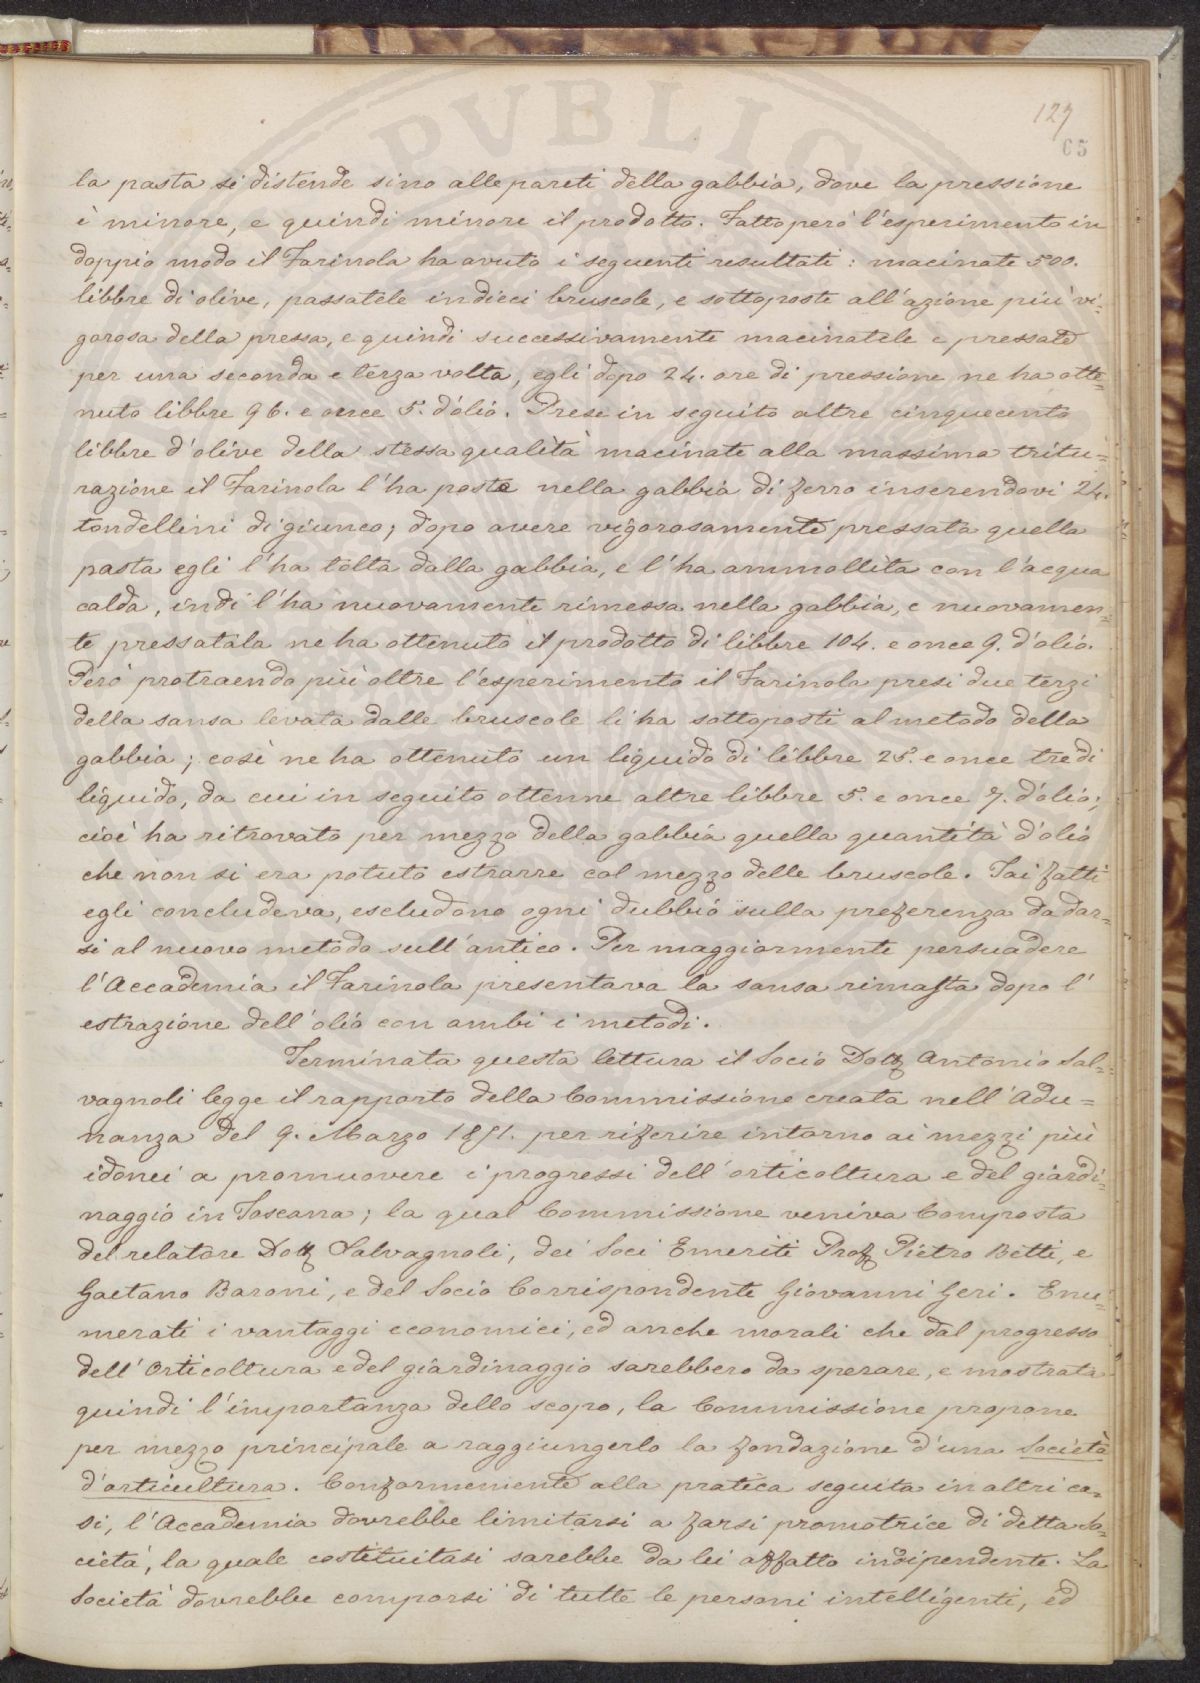 PVBLIC
127
65
la pasta si distende sino alle pareti della gabbia, dove la pressione
è minore, e quindi minore il prodotto. Fatto però l'esperimento in
doppio modo il Farinola ha avuto i seguenti resultati: macinate 500.
libbre di olive, passatele in dieci bruscole, e sottoposte all'azione più vi=
gorosa della pressa, e quindi successivamente macinatele e pressate
per una seconda e terza volta, egli dopo 24. ore di pressione ne ha otte=
nuto libbre 96. e once 5. d'olio. Prese in seguito altre cinquecento
libbre d'olive della stessa qualità macinate alla massima tritu=
razione il Farinola l'ha poste nella gabbia di ferro inserendovi 24.
tondellini di giunco; dopo avere vigorosamente pressata quella
pasta egli l'ha tolta dalla gabbia, e l'ha ammollita con l'acqua
calda, indi l'ha nuovamente rimessa nella gabbia, e nuovamen=
te pressatala ne ha ottenuto il prodotto di libbre 104. e once 9. d'olio.
Però protraendo più oltre l'esperimento il Farinola presi due terzi
della sansa levata dalle bruscole li ha sottoposti al metodo della
gabbia; così ne ha ottenuto un liquido di libbre 25. e once tre di
liquido, da cui in seguito ottenne altre libbre 5. e once 7. d'olio;
cioè ha ritrovato per mezzo della gabbia quella quantità d'olio
che non si era potuto estrarre col mezzo delle bruscole. Tai fatti
egli concludeva, escludono ogni dubbio sulla preferenza da dar=
si al nuovo metodo sull'antico. Per maggiormente persuadere
l'Accademia il Farinola presentava la sansa rimasta dopo l'
estrazione dell'olio con ambi i metodi.
Terminata questa lettura il Socio Dott Antonio Sal=
vagnoli legge il rapporto della Commissione creata nell'Adu=
nanza del 9. Marzo 1851. per riferire intorno ai mezzi più
idonei a promuovere i progressi dell'orticoltura e del giardi=
naggio in Toscana; la qual Commissione veniva Composta
del relatore Dott Salvagnoli, dei Soci Emeriti Prof Pietro Betti, e
Gaetano Baroni, e del Socio Corrispondente Giovanni Geri. Enu=
merati i vantaggi economici, ed anche morali che dal progresso
dell'Orticoltura e del giardinaggio sarebbero da sperare, e mostrata
quindi l'importanza dello scopo, la Commissione propone
per mezzo principale a raggiungerlo la fondazione d'una Società
d'orticultura. Conformemente alla pratica seguita in altri ca=
si, l'Accademia dovrebbe limitarsi a farsi promotrice di detta So=
cietà, la quale costituitasi sarebbe da lei affatto indipendente. La
Società dovrebbe comporsi di tutte le persone intelligenti, ed